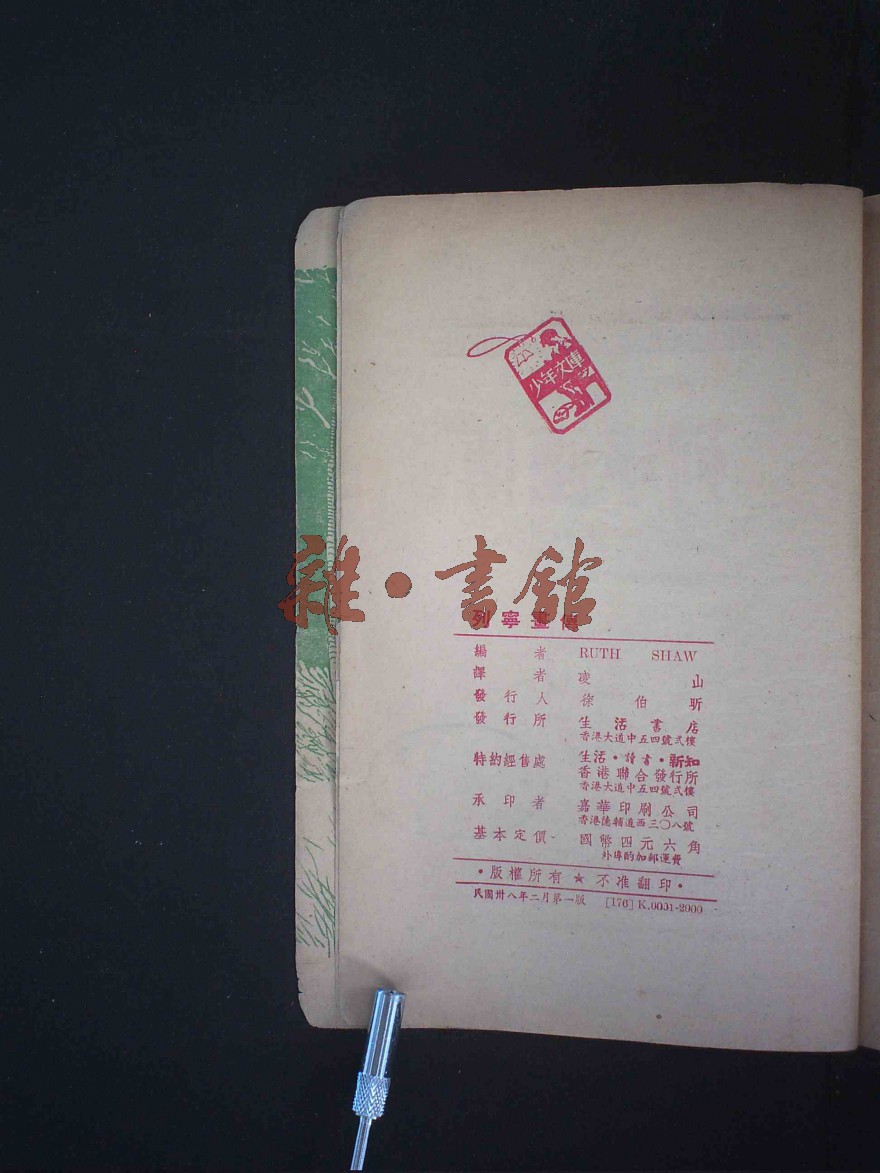 少年文庫
雜·書館
列寧畫傳
編者 RUTH SHAW
譯者 凌山
發行人 徐伯昕
發行所 生活書店
香港大道中五四號式樓
特約經售處 生活·讀書·新知
香港聯合發行所
香港大道中五四號式樓
承印者 嘉華印刷公司
香港德輔道西三〇八號
基本定價 國幣四元六角
外埠酌加郵運費
·版權所有★不准翻印·
民國卅八年二月第一版 [176] K.0001-2000